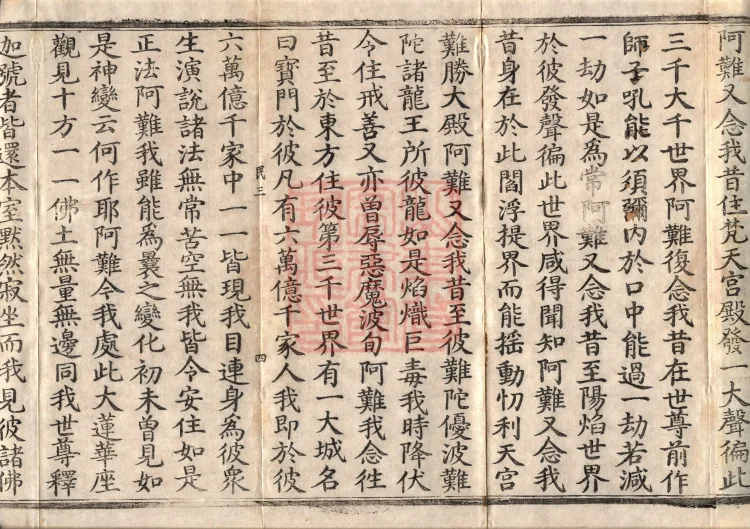 阿難又念我昔住梵天宮殿發一大聲徧此
三千大千世界阿難復念我昔在世尊前作
師子吼能以須彌內於口中能過一劫若減
一劫如是為常阿難又念我昔至陽焰世界
於彼發聲徧此世界咸得聞知阿難又念我
昔身在於此閻浮提界而能搖動忉利天宮
難勝大殿阿難又念我昔至彼難陀優波難
陀諸龍王所彼龍如是焰熾巨毒我時降伏
令住戒善又亦曾辱惡魔波旬阿難我念往
昔至於東方住彼第三千世界有一大城名
曰寶門於彼凡有六萬億千家人我即於彼
民三 四
六萬億千家中一一皆現我目連身為彼眾
生演說諸法無常苦空無我皆令安住如是
正法阿難我雖能為曩之變化初未曾見如
是神變云何作耶阿難今我處此大蓮華座
觀見十方一一佛土無量無邊同我世尊釋
加號者皆還本室默然寂坐而我見彼諸佛